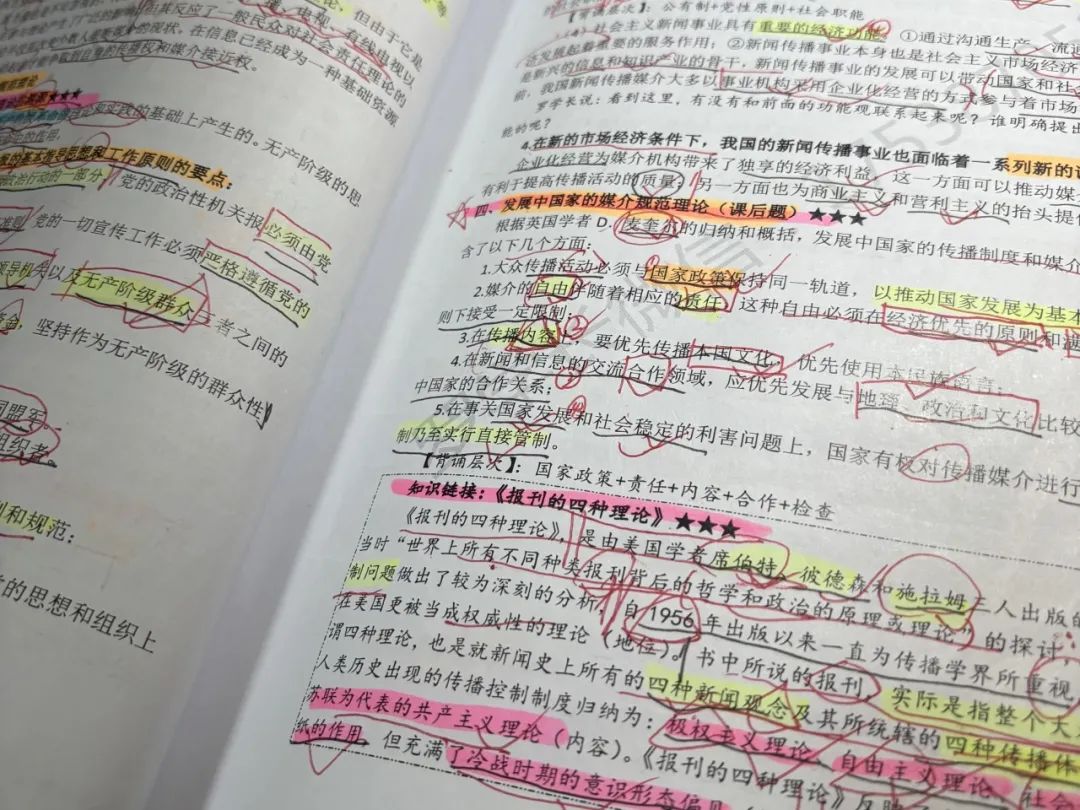 但由于它是
电视、有线电视以
了广泛的影响 由其反应了一般民众对社会责任理论的
现状，在信息已经成为一种基础资源
争取到自身的传播权和媒介接近权。
★★★
的基础上产生的。无产阶级的思
的作用。
的基本指导思想和工作原则的要点：
政治行动的一部分，党的政治性机关报必须由党
准则，党的一切宣传工作必须严格遵循党的
领导机关以及无产阶级群众二者之间的
坚持作为无产阶级的群众性
同盟军
组织者。
则和规范：
的思想和组织上
【背诵层次】：公有制+党性原则+社会职能
（4）社会主义新闻事业具有重要的经济功能。①通过沟通生产、流通
还发展起着重要的服务作用；②新闻传播事业本身也是社会主义市场经济
是新兴的信息和知识产业的骨干，新闻传播事业的发展可以带动国家和社
前，我国新闻传播媒介大多以事业机构采用企业化经营的方式参与着市场
罗学长说：看到这里，有没有和前面的功能观联系起来呢？谁明确提出
能的呢？
4.在新的市场经济条件下，我国的新闻传播事业也面临着一系列新的
企业化经营为媒介机构带来了独享的经济利益，这一方面可以推动媒
有利于提高传播活动的质量；另一方面也为商业主义和营利主义的抬头提
四、发展中国家的媒介规范理论（课后题）★★★
根据英国学者 D.麦奎尔的归纳和概括，发展中国家的传播制度和媒
含了以下几个方面：
1.大众传播活动必须与国家政策保持同一轨道，以推动国家发展为基本
2.媒介的自由伴随着相应的责任，这种自由必须在经济优先的原则和满
则下接受一定限制；
3.在传播内容上，要优先传播本国文化，优先使用本民族语言；
4.在新闻和信息的交流合作领域，应优先发展与地理、政治和文化比较
中国家的合作关系；
5.在事关国家发展和社会稳定的利害问题上，国家有权对传播媒介进行
制乃至实行直接管制。
【背诵层次】：国家政策+责任+内容+合作+检查
知识链接：《报刊的四种理论》★★★
《报刊的四种理论》，是由美国学者席伯特、彼德森和施拉姆三人出版的
当时“世界上所有不同种类报刊背后的哲学和政治的原理或理论”的探讨
制问题做出了较为深刻的分析，自 1956 年出版以来一直为传播学界所重视，
在美国更被当成权威性的理论（地位）。书中所说的报刊，实际是指整个大
谓四种理论，也是就新闻史上所有的四种新闻观念及其所统辖的四种传播体
人类历史出现的传播控制制度归纳为：极权主义理论、自由主义理论、社会
苏联为代表的共产主义理论（内容）。《报刊的四种理论》
纸的作用，但充满了冷战时期的意识形态偏见